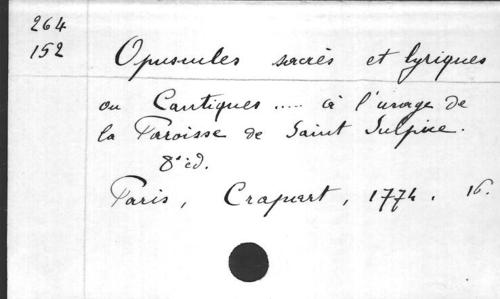 264
152
Opuscules sacrés et lyriques
ou Cantiques ..... à l'usage de
la Paroisse de Saint Sulpice.
8° éd.
Paris, Crapart, 1774. 16.